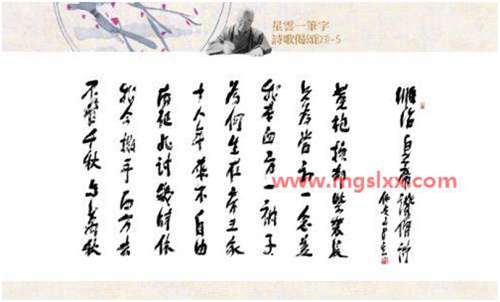 星雲一筆字
詩歌偈頌(23)-5
順治皇帝讚僧詩
黃袍換却紫袈裟
只為當初一念差
我本西方一衲子
為何生在帝王家
十八年來不自由
南征北討幾時休
我今撒手西方去
不管千秋與萬秋
www.mgslxx.com